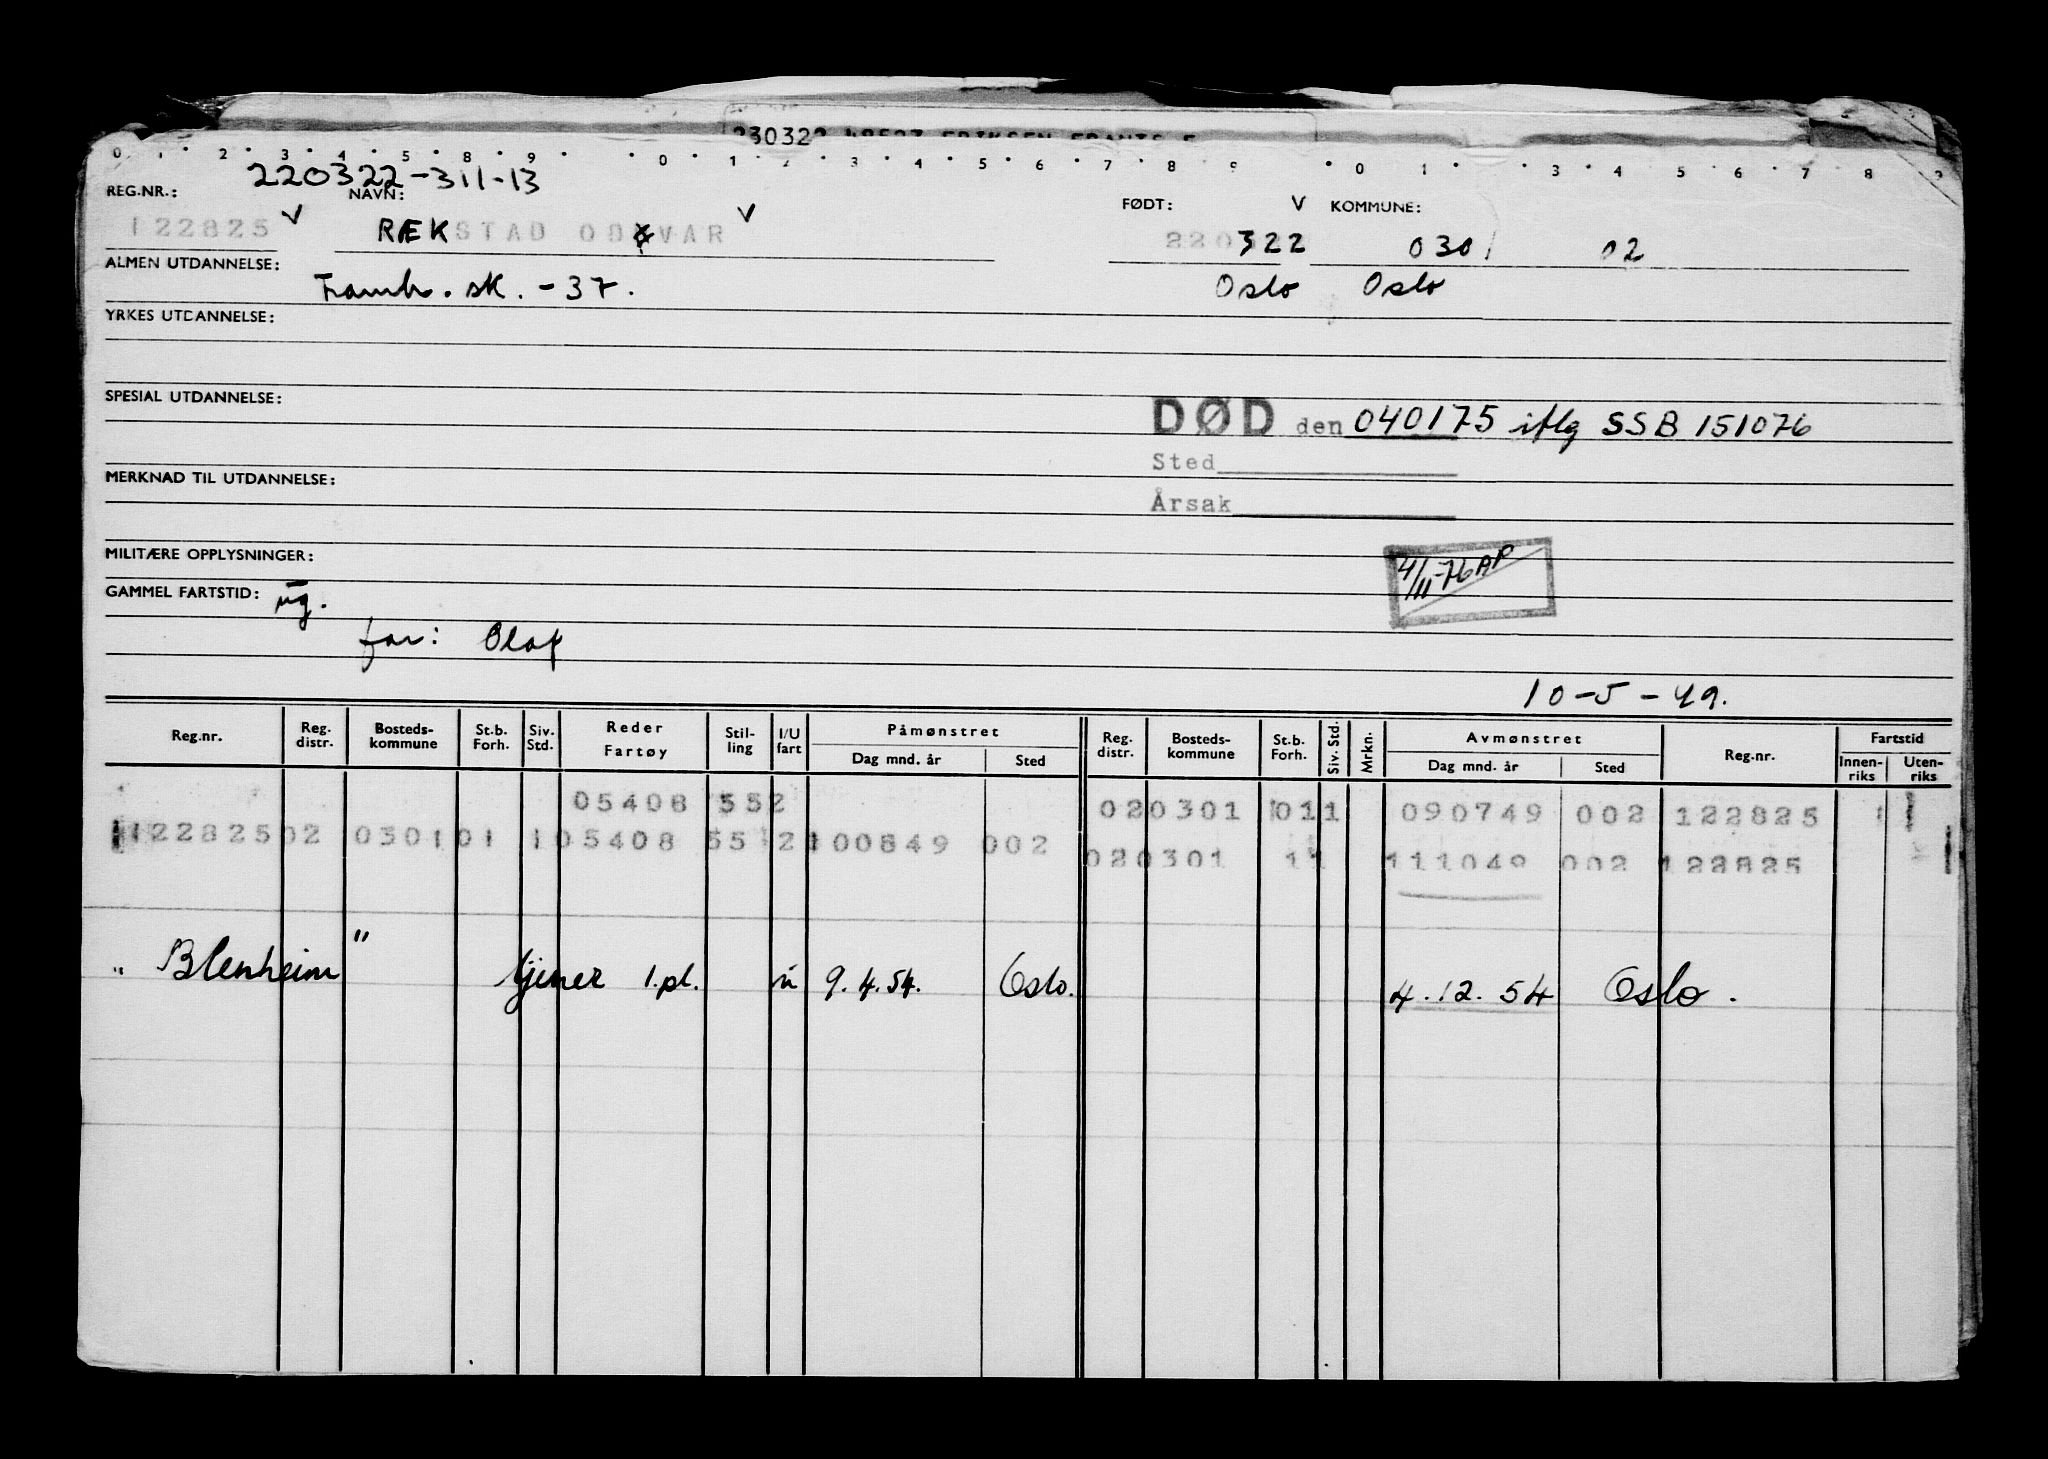 230322
0 1 2 3 4 5 8 9 0 1 2 3 4 5 6 7 8 9 0 1 3 4 5 6 7 8
220322-311-13
REG.NR.: NAVN: FØDT: V KOMMUNE:
122825 V RÆKSTAD ODVAR V 220322 0301 02
ALMEN UTDANNELSE: Framh. sk. - 37. Oslo Oslo
YRKES UTDANNELSE:
SPESIAL UTDANNELSE:
DØD den 040175 iflg SSB 151076
Sted
MERKNAD TIL UTDANNELSE:
Årsak
MILITÆRE OPPLYSNINGER:
4/11-76 AP
GAMMEL FARTSTID:
far: Olaf
10-5-49.
Reg.nr. Reg. distr. Bosteds-kommune St.b. Forh. Siv. Std. Reder Fartøy Stil-ling I/U fart Påmønstret Dag mnd. år Sted Reg. distr. Bosteds-kommune St.b. Forh. Siv. Std. Mrkn. Avmønstret Dag mnd. år Sted Reg.nr. Fartstid Innen-riks Uten-riks
05408 552 020301 011 090749 002 122825
122825 02 0301 01 1 05408 55 2 100849 002 020301 11 111049 002 122825
" Blenheim " tjener 1.pl. u 9.4.54. Oslo. 4.12.54 Oslo.